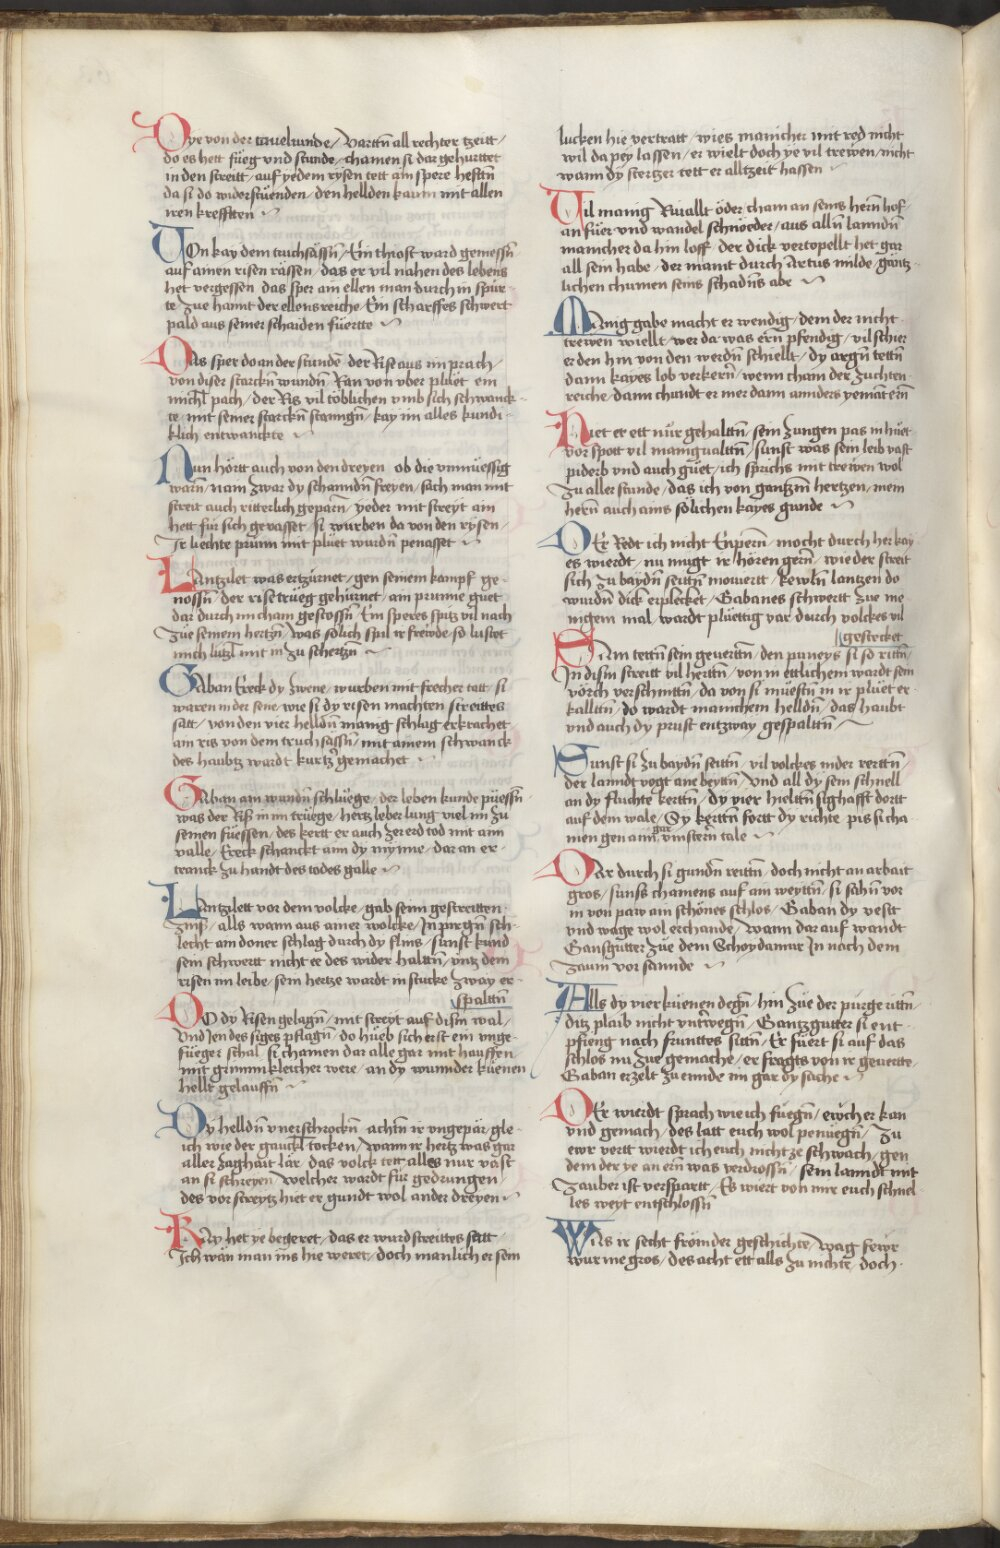 Dye von der tauelrunde / Varttn all rechter tzeitt /
do es hett füeg vnd stunde / chamen si dar gehurttet
in den streitt / auf yedem rysen tett ain spere hefften
da si do widerstüenden / den hellden kaum mit allen
iren krefften
Von kay dem truchsässn / Ein thiost ward gemessn
auf ainen risen rässen / das er vil nahen des lebens
het vergessen / das sper ain ellen man durch in spür-
te / zue hannt der ellensreiche / Ein scharffes schwert
pald aus seiner schaiden füertte
Das sper do an der stunde / der Rise aus im prach /
von diser starckn wundn / Ran von vber plüet ein
michl pach / der Ris vil töblichen vmb sich schwanck-
te / mit seiner starckn stanngn / kay im alles kundi-
klich entwanckte
Nun hörtt auch von den dreyen / ob die vnmüessig
warn / nam zwar dy schanndn freyen / sach man mit
streit auch ritterlich geparn / yeder mit streyt ain
hett für sich gevasset / si wurben da von den rysen /
Ir liechte prünn mit plüet wurdn penasset
Lantzilet was ertzürnet / gen seinem kampf ge-
nossn / der rise trueg gehürnet / ain prünne guet
dar durch im cham gestossn / Ein speres spitz vil nach
Züe seinem hertzn / was solich spil ir frewde / so lustet
mich lützl mit in zu schertzn
Gaban Ereck dy zwene / wurben mit frecher tatt / si
waren in der sene / wie si dy risen machten streittes
satt / von den vier helldn manig schlag erkrachet
ain ris von dem truchsässn / mit ainem schwanck
des haubtz wardt kurtz gemachet
Gaban ain wundn schlüege / der leben kunde püessn
was der Riß in im trüege / hertz leber lung viel im zu
seinen füessen / des kertt er auch zer erd tod mit ainn
valle / Ereck schanckt ainn dy mynne / dar an er-
tranck zu handt des todes galle
Lantzilett vor dem volcke / gab seim gestreitten
zinß / alls wann aus ainer wolcke / In pirgn sch-
lecht ain doner schlag durch dy flins / sunst kund
sein schwertt nicht ee des wider halttn / vntz dem
risen im leibe / sein hertze wardt in stucke zway er-
spalttn
Do dy Risen gelagn / mit streyt auf disem wal /
Vnd Jen des siges pflagn / do hüeb sich erst ein vnge-
füeger schal / si chamen dar alle gar mit hauffen
mit grimmkleicher were / an dy wunnder küenen
hellt gelauffn
Dy helldn vnerschrockn / achtn ir vngepär / gle-
ich wie der gauckl tocken / Wann ir hertz was gar
aller zaghait lär / das volck tett alles nur vast
an si schreyen / welcher wardt für gedrungen /
des vor streytz hiet er gundt wol ander dreyen
Kay het ye begeret / das er wurd streittes satt /
Ich wän man ins hie weret / doch manlich er sein
lucken hie vertratt / wies manicher mit red nicht
wil da pey lassen / er wielt doch ye vil trewen / nicht
wann dy stertzer tett er alltzeit hassen
Vil manig Riuallt öder / cham an seins hern hof /
an füer vnd wandel schnöeder / aus alln lanndn
manicher da hin loff / der dick vertopellt het gar
all sein habe / der maint durch Artus milde / gäntz-
lichen chumen seins schadns abe
Manig gabe macht er wendig / dem der nicht
trewen wiellt / wer da was ern pfendig / vil schier
er den hin von den werdn schiellt / dy argn tettn
dann kayes lob verkern / wenn cham der zuchten
reiche / dann chundt er mer dann annders yemat ern
Hiet er ett nur gehalttn / sein zungen pas in hüet
vor spott vil manigualttn / sunst was sein leib vast
piderb vnd auch güet / ich sprichs mit trewen wol
zu aller stunde / das ich von gantzm hertzen / mein
hern auch ains solichen kayes gunde
Der Redt ich nicht Enpern / mocht durch her kay
es wierdt / nu mugt ir hören gern / wie der streit
sich zu baydn seittn mouiertt / kewln lantzen do
wurdn dick erplecket / Gabanes schwertt zue me-
nigem mal / wardt plüettig var durch volckes vil
gestecket
Sam tettn sein geuerttn / den puneys si so rittn /
In disem streitt vil herttn / von in ettlichem wardt sein
vörch verschnittn / da von si müestn in ir plüet er-
kalltn / do wardt mannichem helldn / das haubt
vnd auch dy prust entzway gespalttn
Sunst si zu baydn seittn / vil volckes in der rerttn
der lanndt vogt ane beyttn / Vnd all dy sein schnell
an dy fluchte kerttn / dy vier hielttn sighafft dortt
auf dem wale / Sy kerttn fortt dy richte / pis si cha-
men gen ainn gar vinstern tale
Dar durch si gundn reittn / doch nicht an arbait
gros / sunst chamens auf ain weyttn / si sahn vor
in von paw ain schönes schlos / Gaban dy vestt
vnd wage wol erchande / wann dar auf wandt
Gansguter züe dem Schoydamur / In nach dem
zaum vor sannde
Alls dy vier küenen degn / hin züe der pürge rittn
ditz plaib nicht vntrwegn / Gantzgutter si ent-
pfieng nach frunttes sittn / Er füert si auf das
schlos nu zue gemache / er fragts von ir geuertte
Gaban erzelt zu ennde im gar dy sache
Der wierdt sprach wie ich füegn / ewch er kan
vnd gemach / des latt euch wol penüegn / zu
ewr vertt wierdt ich euch nicht ze schwach / gen
dem der ye an ern was verdrossn / sein lanndt mit
zauber ist verspartt / Es wiert von mir euch schnel-
les weyt entschlossn
Was ir secht frömder geschichte / wag fewr
würme gros / des acht ett alls zu nichte / doch